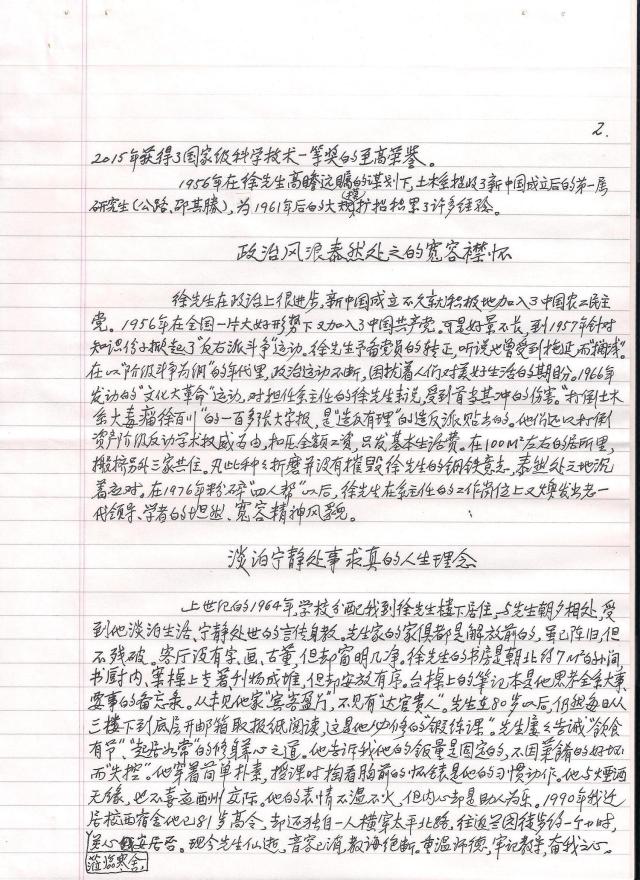 2.
2015年获得了国家级科学技术一等奖的至高荣誉。
1956年在徐先生高瞻远瞩的谋划下,土木系招收了新中国成立后的第一届
研究生(公路、邱其胜),为1961年后的大规模扩招积累了许多经验。
政治风浪泰然处之的宽容襟怀
徐先生在政治上很进步,新中国成立不久就积极地加入了中国农工民主
党。1956年在全国一片大好形势下又加入了中国共产党。可是好景不长,到1957年针对
知识份子掀起了"反右派斗争"运动。徐先生予备党员的转正,听说也曾受到拖延而"搁浅"。
在以"阶级斗争为纲"的年代里,政治运动不断,困扰着人们对美好生活的期盼。1966年
发动的"文化大革命"运动,对担任系主任的徐先生来说,受到首当其冲的伤害。"打倒土木
系大毒瘤徐百川"的一百多张大字报,是"造反有理"的造反派贴出的。他们还以打倒
资产阶级反动学术权威为由,扣压全额工资,只发基本生活费。在100M²左右的居所里,
搬挤另外三家共住。凡此种种折磨并没有摧毁徐先生的钢铁意志,泰然处之地沉
着应对,在1976年粉碎"四人帮"以后,徐先生在系主任的工作岗位上又焕发出老一
代领导、学者的坦然、宽容精神风貌。
淡泊宁静处事求真的人生理念
上世纪的1964年,学校分配我到徐先生楼下居住,与先生朝夕相处,受
到他淡泊生活、宁静处世的言传身教。先生家的家俱都是解放前的,虽已陈旧,但
不残破。客厅没有字、画、古董,但却窗明几净。徐先生的书房是朝北约7M²的小间,
书厨内、案桌上专著刊物成堆,但却安放有序。台桌上的笔记本是他思考全系大事、
要事的备忘录。从未见他家"宾客盈门",不见有"达官贵人"。先生在80岁以后,仍然每日从
三楼下到底层开邮箱取报纸阅读,这是他必修的"锻练课"。先生屡々告诫"饮食
有节"、"起居如常"的修身养心之道。他告诉我他的饭量是固定的,不因菜肴的好坏
而"失控"。他穿着简单朴素,授课时掏看胸前的怀錶是他的习惯动作。他与烟酒
无缘,也不喜应酬交际。他的表情不温不火,但内心却是助人为乐。1990年我迁
居校西宿舍他已81岁高令,却还独自一人横穿太平北路,往返兰园徒步约一个小时,
莅临寒舍,
关心安居否。现今先生仙逝,音容已消,教诲绝断。重温师德,牢记教导,奋我之心。